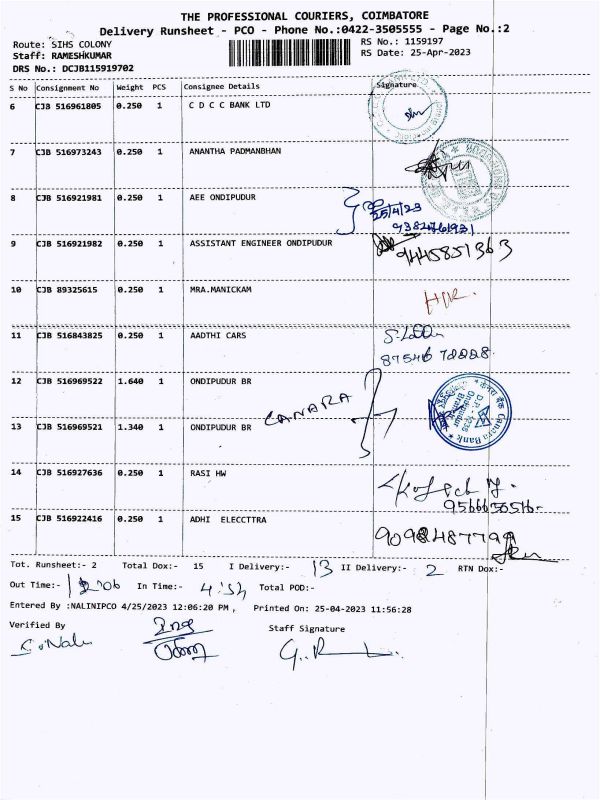 THE PROFESSIONAL COURIERS, COIMBATORE
Delivery Runsheet - PCO - Phone No.:0422-3505555 - Page No.:2
Route: SIHS COLONY
RS No.: 1159197
Staff: RAMESHKUMAR
RS Date: 25-Apr-2023
DRS No.: DCJB115919702
S No Consignment No Weight PCS Consignee Details Signature
6 CJB 516961805 0.250 1 C D C C BANK LTD
7 CJB 516973243 0.250 1 ANANTHA PADMANBHAN
8 CJB 516921981 0.250 1 AEE ONDIPUDUR
25/4/23
9384761931
9 CJB 516921982 0.250 1 ASSISTANT ENGINEER ONDIPUDUR
9445851363
10 CJB 89325615 0.250 1 MRA.MANICKAM
11 CJB 516843825 0.250 1 AADTHI CARS
12 CJB 516969522 1.640 1 ONDIPUDUR BR
CANARA
Canara Bank
13 CJB 516969521 1.340 1 ONDIPUDUR BR
14 CJB 516927636 0.250 1 RASI HW
15 CJB 516922416 0.250 1 ADHI ELECCTTRA
Tot. Runsheet:- 2 Total Dox:- 15 I Delivery:- 13 II Delivery:- 2 RTN Dox:-
Out Time:- In Time:- Total POD:-
Entered By :NALINIPCO 4/25/2023 12:06:20 PM , Printed On: 25-04-2023 11:56:28
Verified By Staff Signature